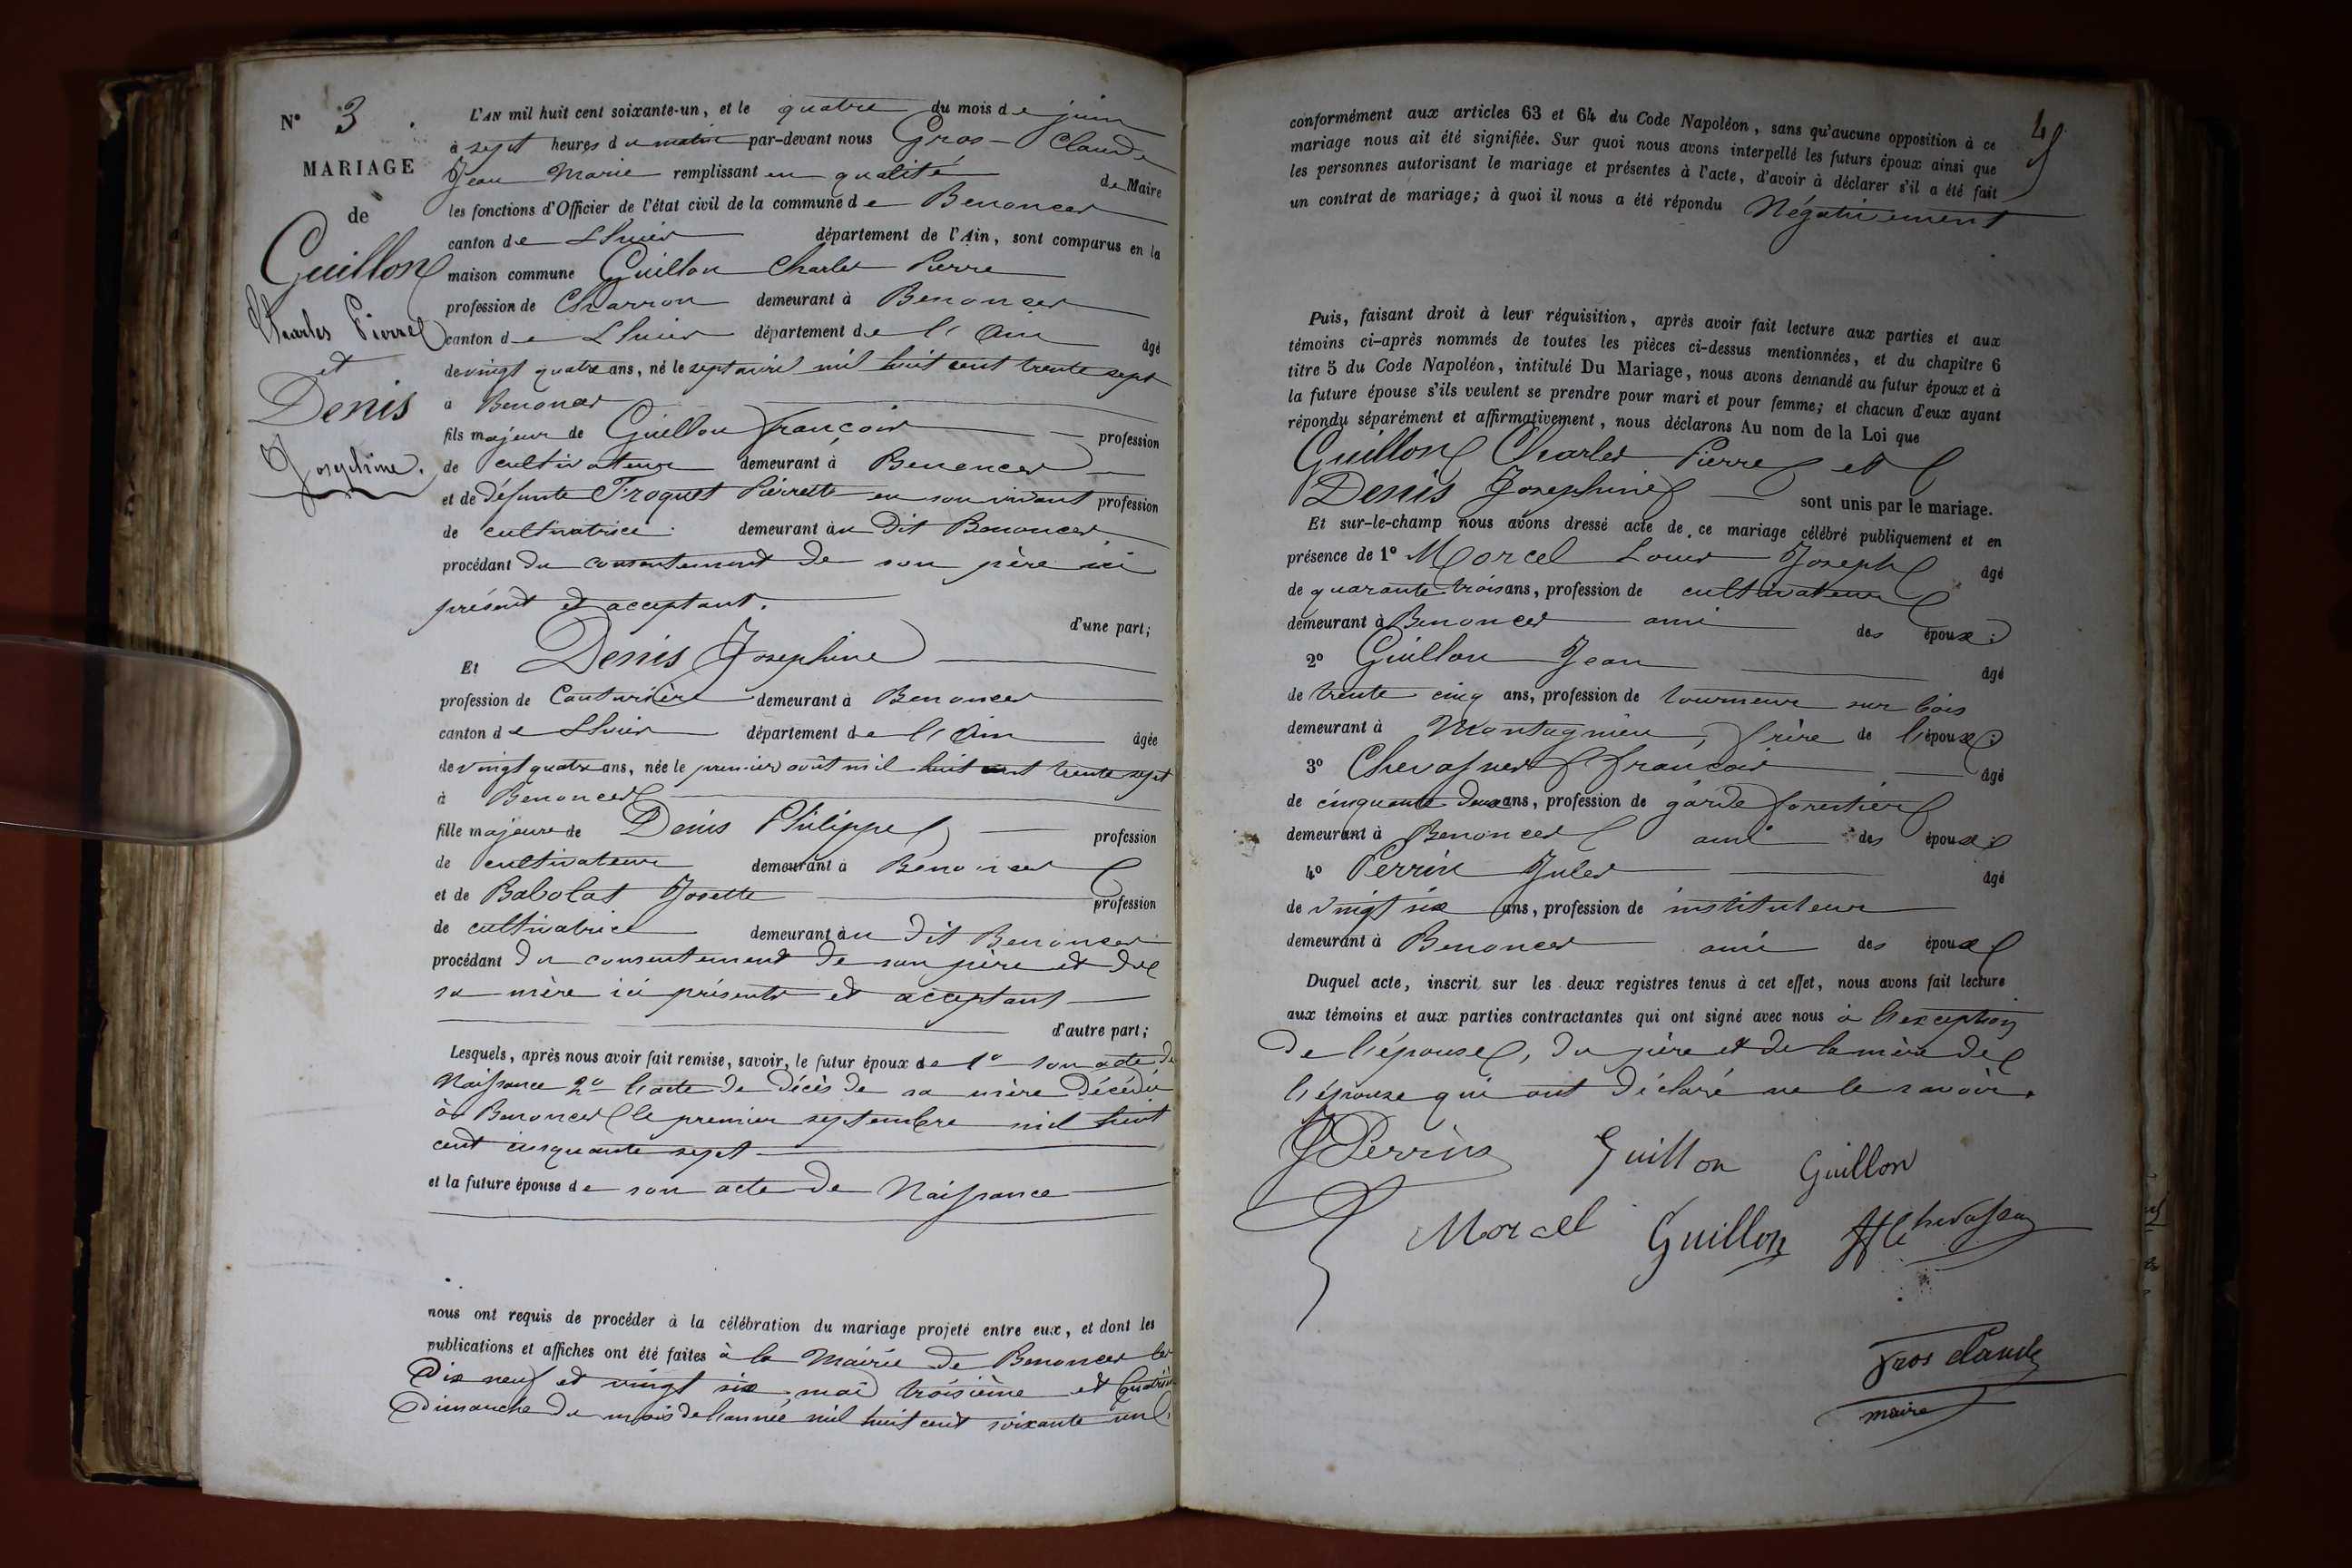 N° 3
MARIAGE
de
Guillon
Charles Pierre
et
Denis
Josephine.
L'AN mil huit cent soixante-un, et le quatre du mois de juin
à sept heures du matin par-devant nous Gros-Claude
Jean Marie remplissant en qualité de Maire
les fonctions d'Officier de l'état civil de la commune de Benonces
canton de Lhuis département de l'Ain, sont comparus en la
maison commune Guillon Charles Pierre
profession de Charron demeurant à Benonces
canton de Lhuis département de l'Ain âgé
de vingt quatre ans, né le sept avril mil huit cent trente sept
à Benonces
fils majeur de Guillon françois profession
de cultivateur demeurant à Benonces
et de défunte Troquet Pierrette en son vivant profession
de cultivatrice demeurant au dit Benonces
procédant du consentement de son père ici
présent et acceptant.
d'une part;
Et Denis Josephine
profession de Couturière demeurant à Benonces
canton de Lhuis département de l'Ain âgée
de vingt quatre ans, née le premier août mil huit cent trente sept
à Benonces
fille majeure de Denis Philippe profession
de cultivateur demeurant à Benonces
et de Babolat Josette profession
de cultivatrice demeurant au dit Benonces
procédant du consentement de son père et de
sa mère ici présents et acceptant
d'autre part;
Lesquels, après nous avoir fait remise, savoir, le futur époux de 1° son acte de
Naissance 2° l'acte de décès de sa mère décédée
à Benonces le premier septembre mil huit
cent cinquante sept
et la future épouse de son acte de Naissance
nous ont requis de procéder à la célébration du mariage projeté entre eux, et dont les
publications et affiches ont été faites à la Mairie de Benonces les
Dix neuf et vingt six mai troisième et quatrième
Dimanche du mois de l'année mil huit cent soixante un.
conformément aux articles 63 et 64 du Code Napoléon, sans qu'aucune opposition à ce
mariage nous ait été signifiée. Sur quoi nous avons interpellé les futurs époux ainsi que
les personnes autorisant le mariage et présentes à l'acte, d'avoir à déclarer s'il a été fait
un contrat de mariage; à quoi il nous a été répondu Négativement
Puis, faisant droit à leur réquisition, après avoir fait lecture aux parties et aux
témoins ci-après nommés de toutes les pièces ci-dessus mentionnées, et du chapitre 6
titre 5 du Code Napoléon, intitulé Du Mariage, nous avons demandé au futur époux et à
la future épouse s'ils veulent se prendre pour mari et pour femme; et chacun d'eux ayant
répondu séparément et affirmativement, nous déclarons Au nom de la Loi que
Guillon Charles Pierre et
Denis Josephine sont unis par le mariage.
Et sur-le-champ nous avons dressé acte de ce mariage célébré publiquement et en
présence de 1° Morcel Louis Joseph âgé
de quarante trois ans, profession de cultivateur
demeurant à Benonces ami des époux;
2° Guillon Jean âgé
de trente cinq ans, profession de tourneur sur bois
demeurant à Montagnieu, frère de l'époux;
3° Chevassus françois âgé
de cinquante deux ans, profession de garde forestier
demeurant à Benonces ami des époux;
4° Perrin Jules âgé
de vingt six ans, profession de instituteur
demeurant à Benonces ami des époux
Duquel acte, inscrit sur les deux registres tenus à cet effet, nous avons fait lecture
aux témoins et aux parties contractantes qui ont signé avec nous à l'exception
de l'épouse, du père et de la mère de
l'épouse qui ont déclaré ne le savoir.
J Perrin Guillon Guillon
Morcel Guillon
Gros Claude
maire